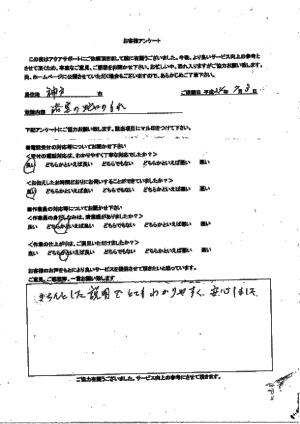 お客様アンケート
この度はアクアサポートにご依頼頂きまして誠に有難うございました。今後、より良いサービス向上の参考と
させて頂くため、率直なご意見、ご感想をお聞かせ下さい。お忙しい中、恐れ入りますがご協力お願い致します。
尚、ホームページに公開させていただく場合もございますので、あらかじめご了承下さい。
居住地 神戸 市 ご依頼日 平成
依頼内容
下記アンケートにご協力お願い致します。該当項目にマル印をつけて下さい。
■電話受付の対応等についてお聞かせ下さい
<受付の電話対応は、わかりやすく丁寧な対応でしたか?>
良い どちらかといえば良い どちらでもない どちらかといえば悪い 悪い
<お伝えしたお時間どおりにお伺いすることができていましたか?>
良い どちらかといえば良い どちらでもない どちらかといえば悪い 悪い
■作業員の対応等についてお聞かせ下さい
<作業員の身だしなみは、清潔感がありましたか?>
良い どちらかといえば良い どちらでもない どちらかといえば悪い 悪い
<作業の仕上がりは、ご満足いただけましたか?>
良い どちらかといえば良い どちらでもない どちらかといえば悪い 悪い
お客様のお声をもとにより良いサービスを提供させて頂きたいと思っています。
ご意見、ご感想等、一言お願い致します
きちんとした説明でとてもわかりやすく、安心しました
ご協力有難うございました。サービス向上の参考にさせて頂きます。